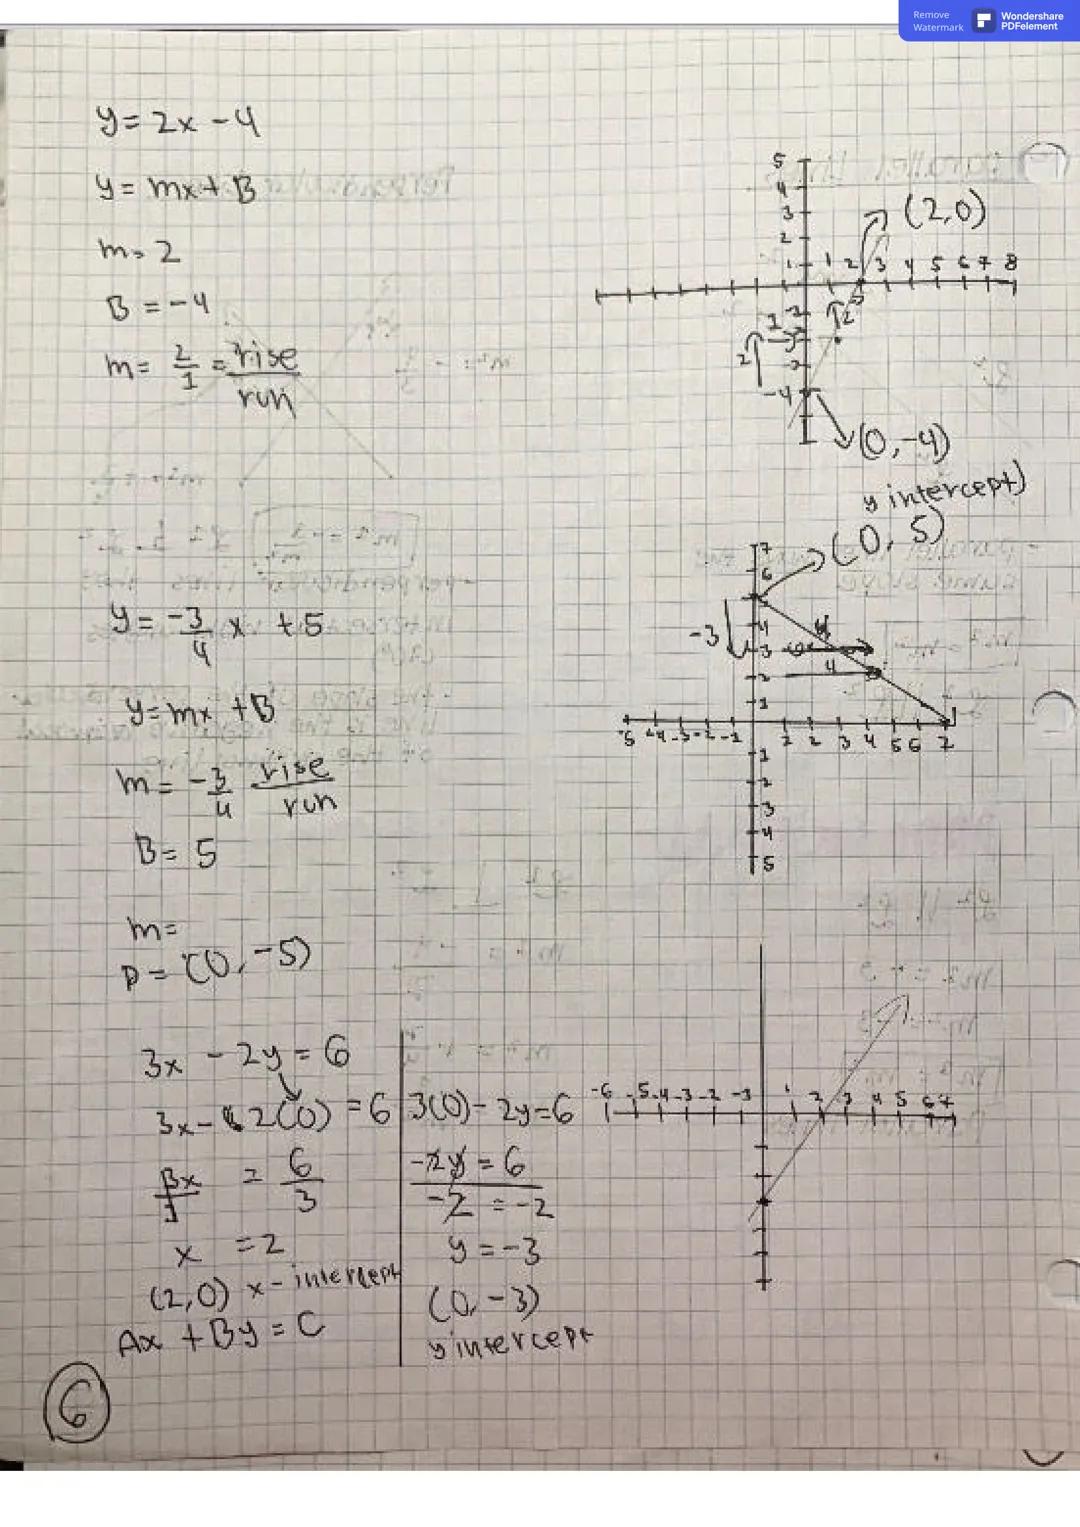 Remove Watermark
Wondershare PDFelement
y = 2x - 4
y = mx + B
m = 2
B = -4
m = 2/1 = rise/run
5
4
3
2
1
1 2 3 4 5 6 7 8
(2,0)
2
2
-4
(0,-4)
y intercept)
(0, 5)
y = -3/4 x + 5
y = mx + B
m = -3/4 rise/run
B = 5
7
6
4
3
2
1
-3
4
-5 -4 -3 -2 -1 1 2 3 4 5 6 7
1
2
3
4
5
m =
p = (0, -5)
3x - 2y = 6
3x - 2(0) = 6
3x = 6/3
x = 2
(2,0) x - intercept
Ax + By = C
3(0) - 2y = 6
-2y = 6
-2 = -2
y = -3
(0, -3)
y intercept
-6 -5 -4 -3 -2 -1 1 2 3 4 5 6 7
6